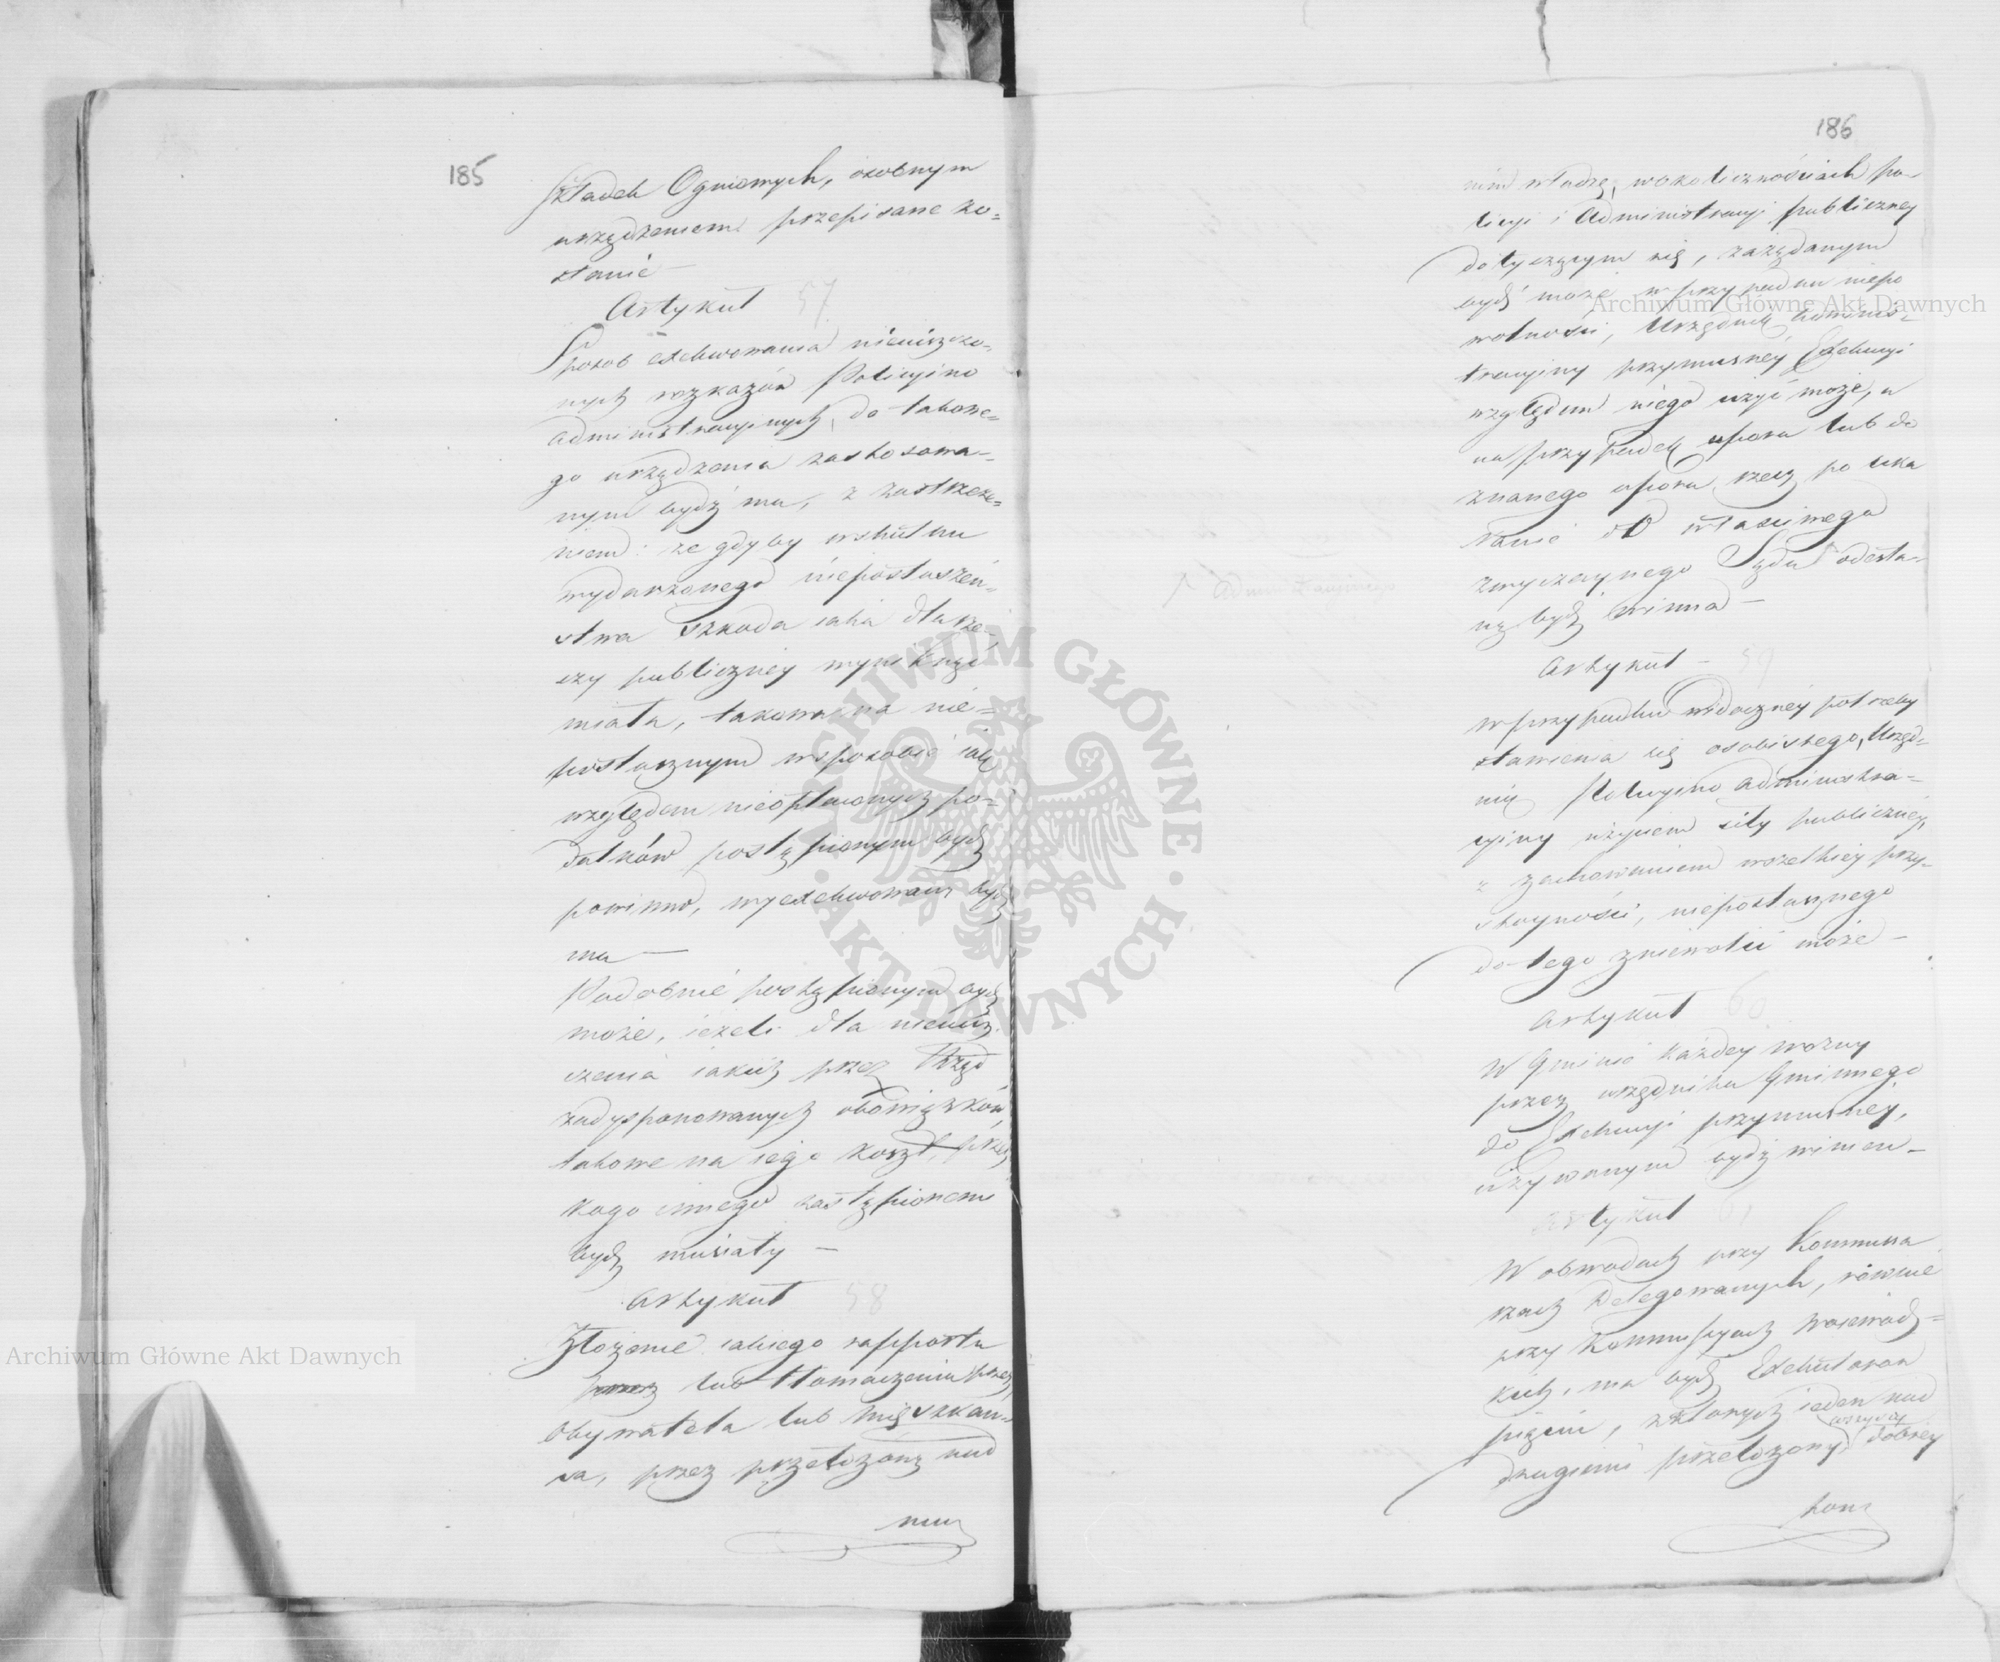 185
Składek Ogniowych, osobnym
urządzeniem przepisane zo=
stanie —
Artykuł 57
Sposób exekwowania nieuiszczo-
nych rozkazów Policyino
administracyinych, do takowe=
go urządzenia zastosowa-
nym bydź ma, z zastrzeże=
niem: że gdyby wskutku
wydarzonego nieposłuszeń-
stwa szkoda iaka dla rze-
czy publiczney wyniknąć
miała, takowa na nie=
posłusznym wsposobie iak
względem nieopłaconych po-
datków postąpionym bydź
powinno, wyexekwowaną bydź
ma —
Podobnie postąpionym bydź
może, ieżeli dla nieuisz
czenia iakich przez Rząd
zadysponowanych obowiązków
takowe na iego koszt, przez
kogo innego zastąpionemi
bydź musiały —
Artykuł 58
Złożenie iakiego rapportu
przez lub tłomaczenia przez
Obywatela lub mięszkań-
ca, przez przełożoną nad
nim
186
nim władzę, wokolicznościach po-
licyi i Administracyi publiczney
dotyczącym się, zażądanym
bydź może w przypadku niepo
wolności, Urzędnik adminis-
tracyiny przymusney Exekucyi
względem niego użyć może, a
na przypadek uporu lub do
znanego oporu rzecz po uka
ranie do właściwego
zwyczaynego Sądu odesła-
ną bydź winna —
Artykuł — 59
w przypadku widoczney potrzeby
stawienia się osobistego, Urzęd-
nik Policyino administra-
cyiny użyciem siły publiczney,
z zachowaniem wszelkiey przy-
stoyności, nieposłusznego
do tego zniewolić może —
Artykuł 60
W Gminie każdey woźny
przez urzędnika Gminnego
do Exekucyi przymusney,
używanym bydź winien —
Artykuł 61
W obwodach przy Kommissa
rzach Delegowanych, równie
przy Kommissyach Woiewódz=
kich, ma bydź Exekutorów
pięciu, zktórych ieden nad
drugiemi przełożony, dobrey
Archiwum Główne Akt Dawnych
Archiwum Główne Akt Dawnych
ARCHIWUM GŁÓWNE AKT DAWNYCH